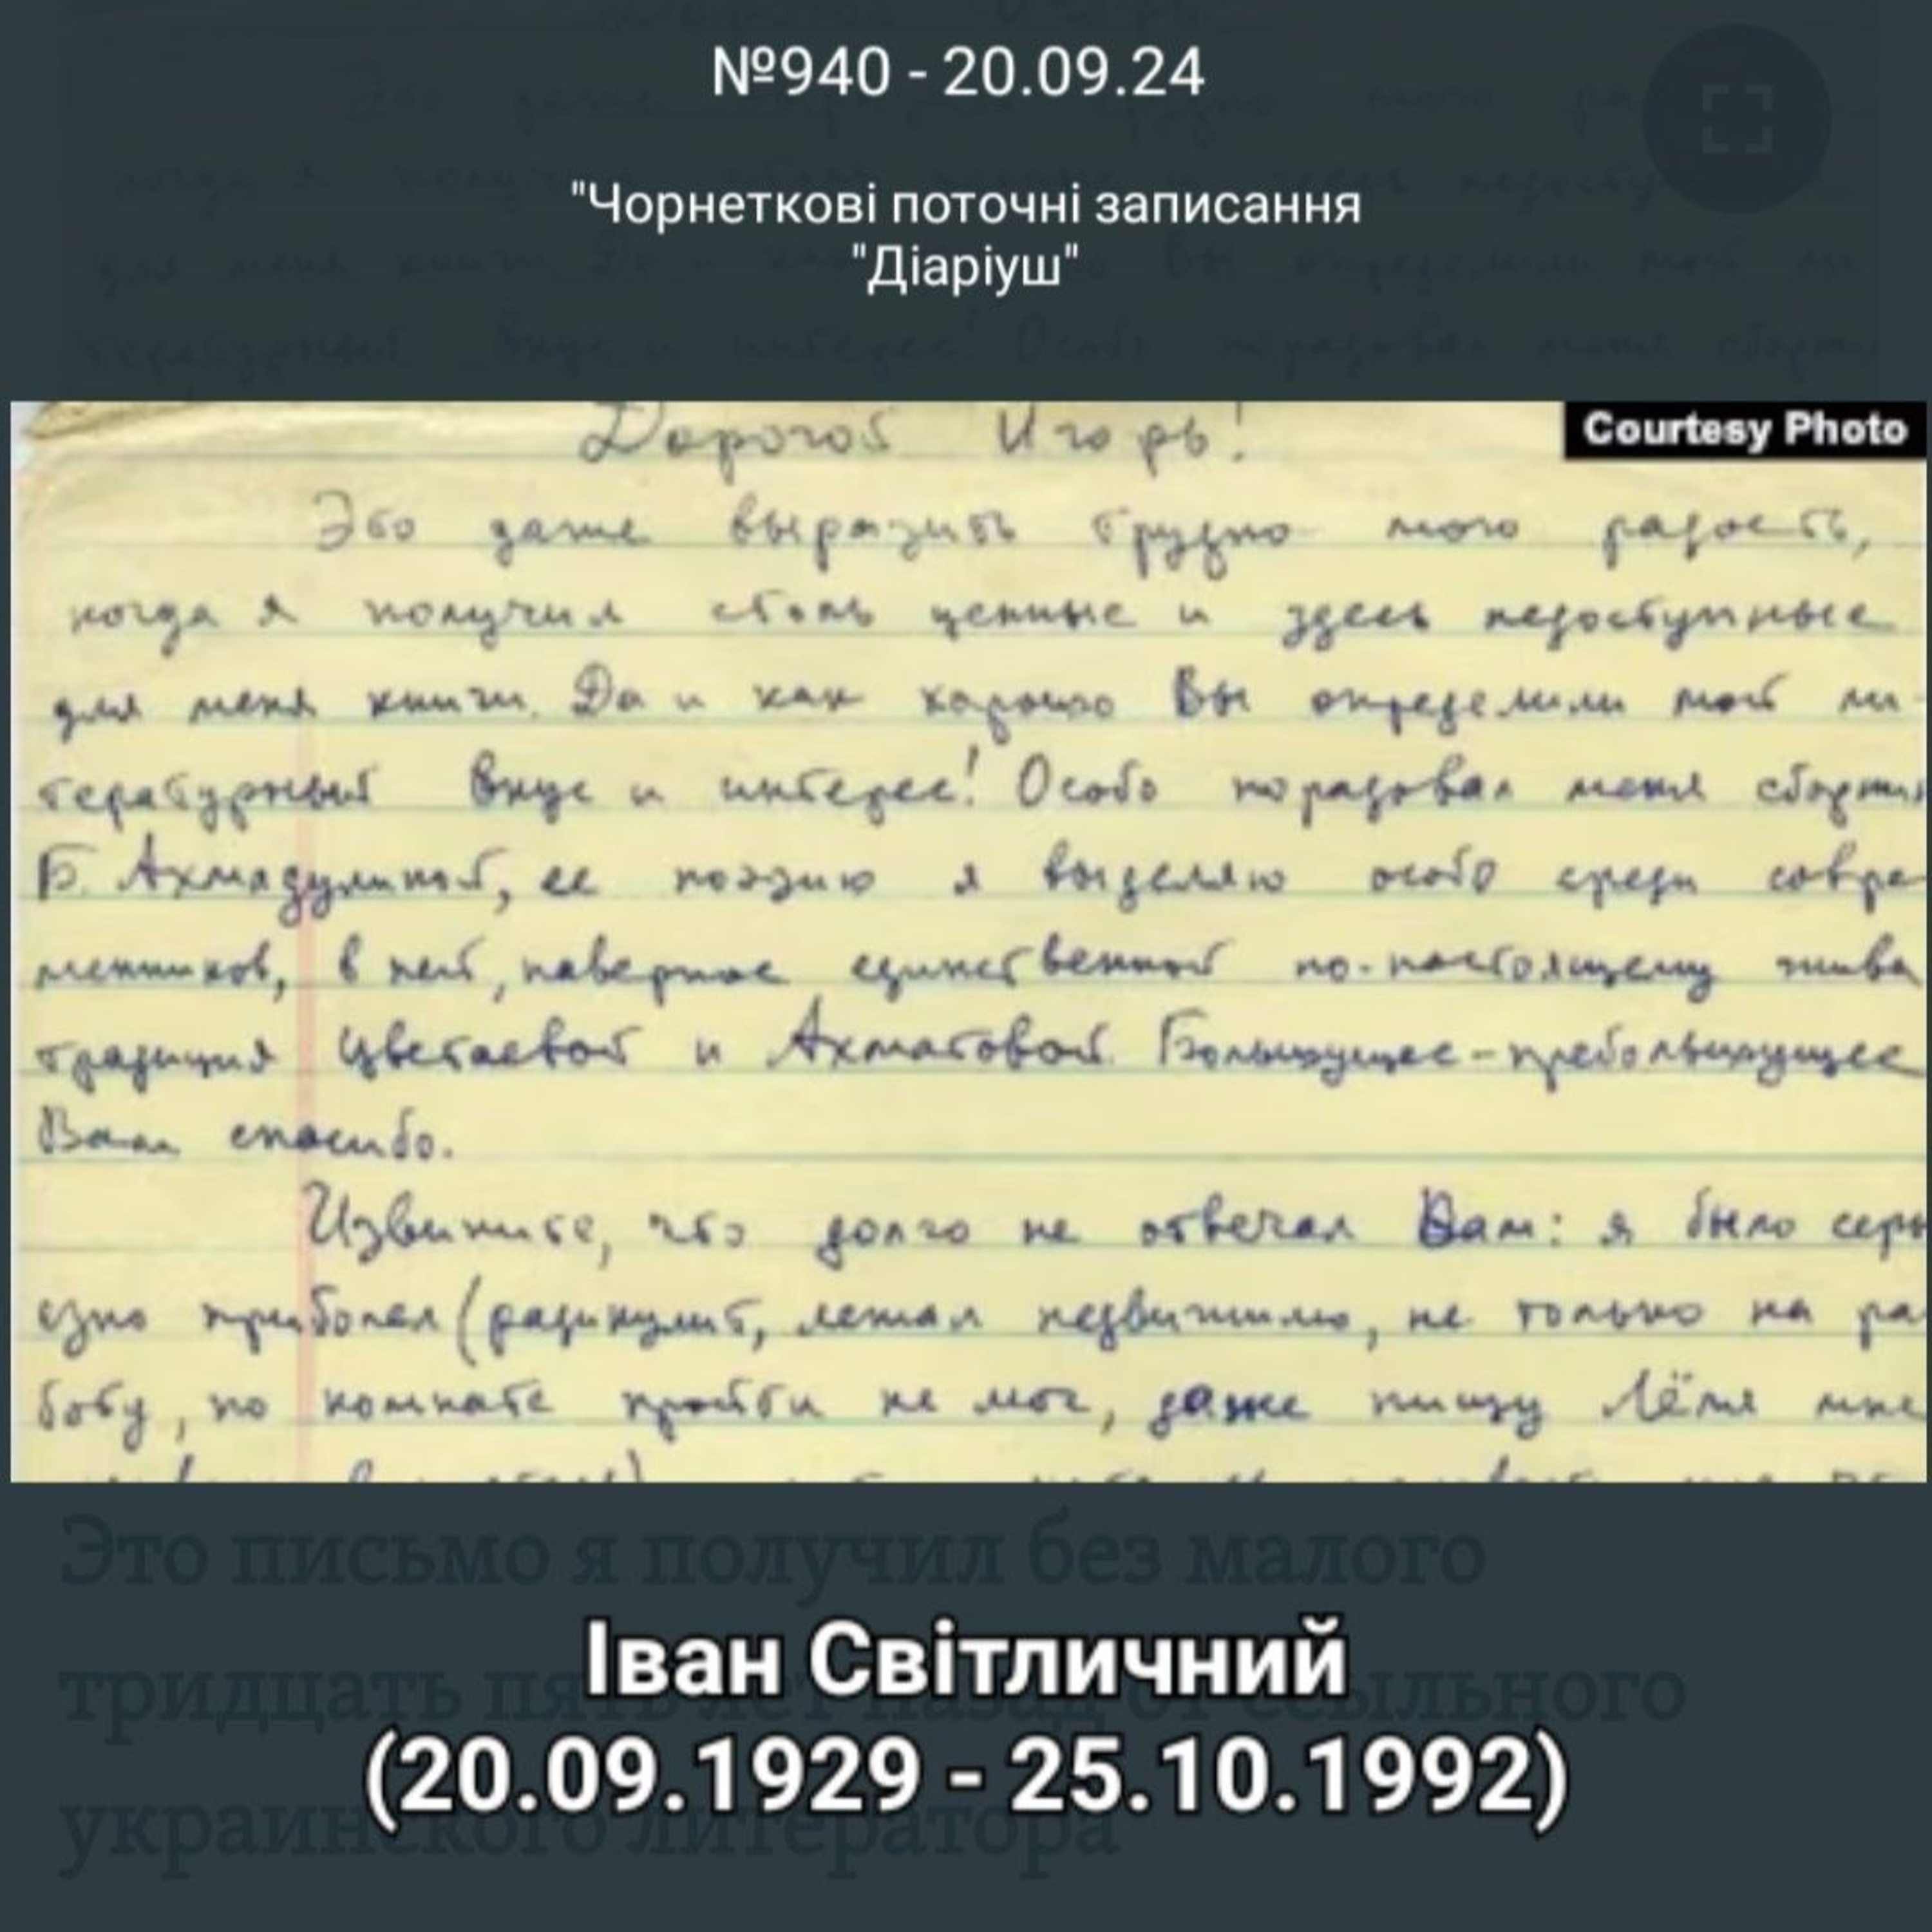 №940 - 20.09.24
"Чорнеткові поточні записання
"Діаріуш"
Courtesy Photo
Дорогой Игорь!
Это даже выразить трудно мою радость,
когда я получил столь ценные и здесь недоступные
для меня книги. Да и как хорошо Вы определили мой ли-
тературный вкус и интерес! Особо порадовал меня сборник
Б. Ахмадулиной, ее поэзию я выделяю особо среди совре-
менников, в ней, наверное единственной по-настоящему жива
традиция Цветаевой и Ахматовой. Большущее-пребольшущее
Вам спасибо.
Извините, что долго не отвечал Вам: я было серь
езно приболел (радикулит, лежал недвижимо, не только на ра
боту, по комнате пройти не мог, даже пищу Лёля мне
Это письмо я получил без малого
тридцать пять лет назад от ссыльного
украинского литератора
Іван Світличний
(20.09.1929 - 25.10.1992)